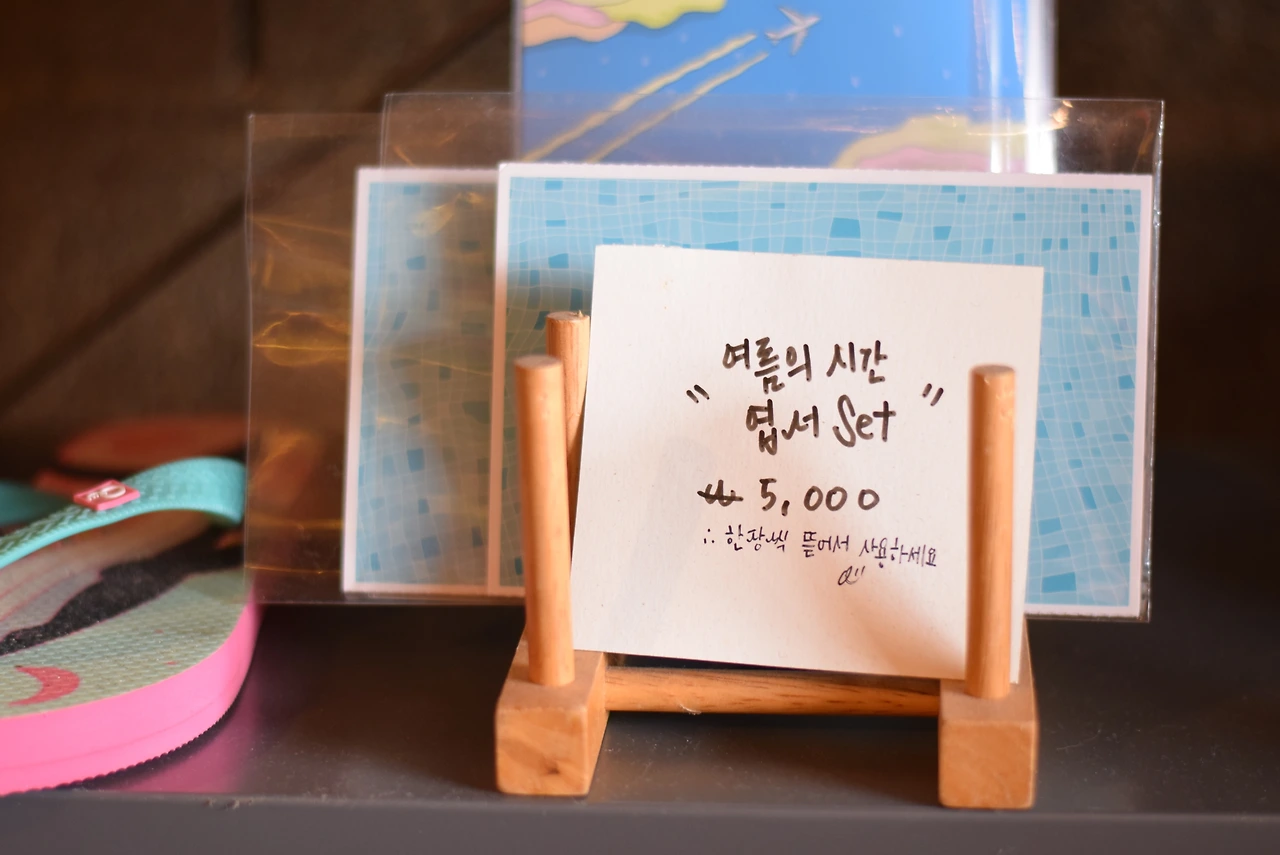 "여름의 시간
엽서 Set"
₩ 5,000
∴ 한장씩 뜯어서 사용하세요